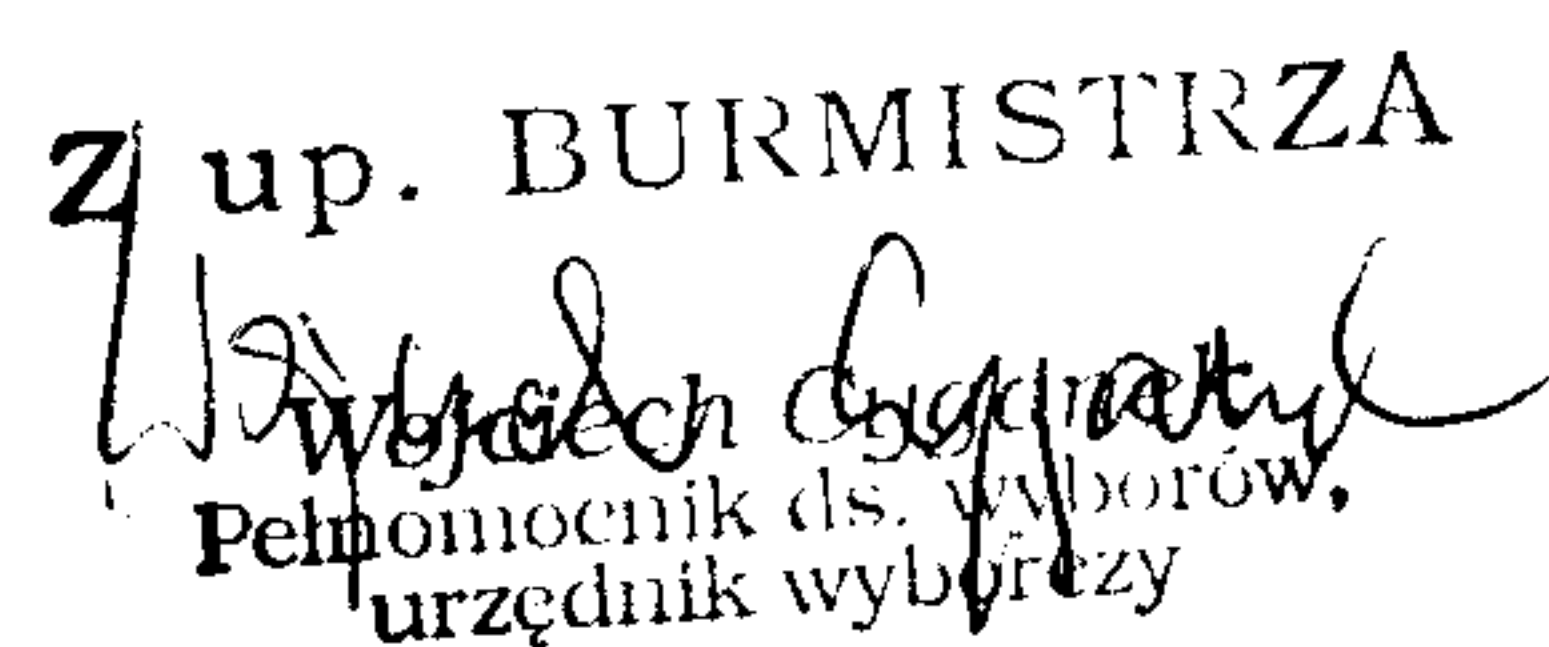 Z up. BURMISTRZA
Wojciech
Pełnomocnik ds. wyborów,
urzędnik wyborczy